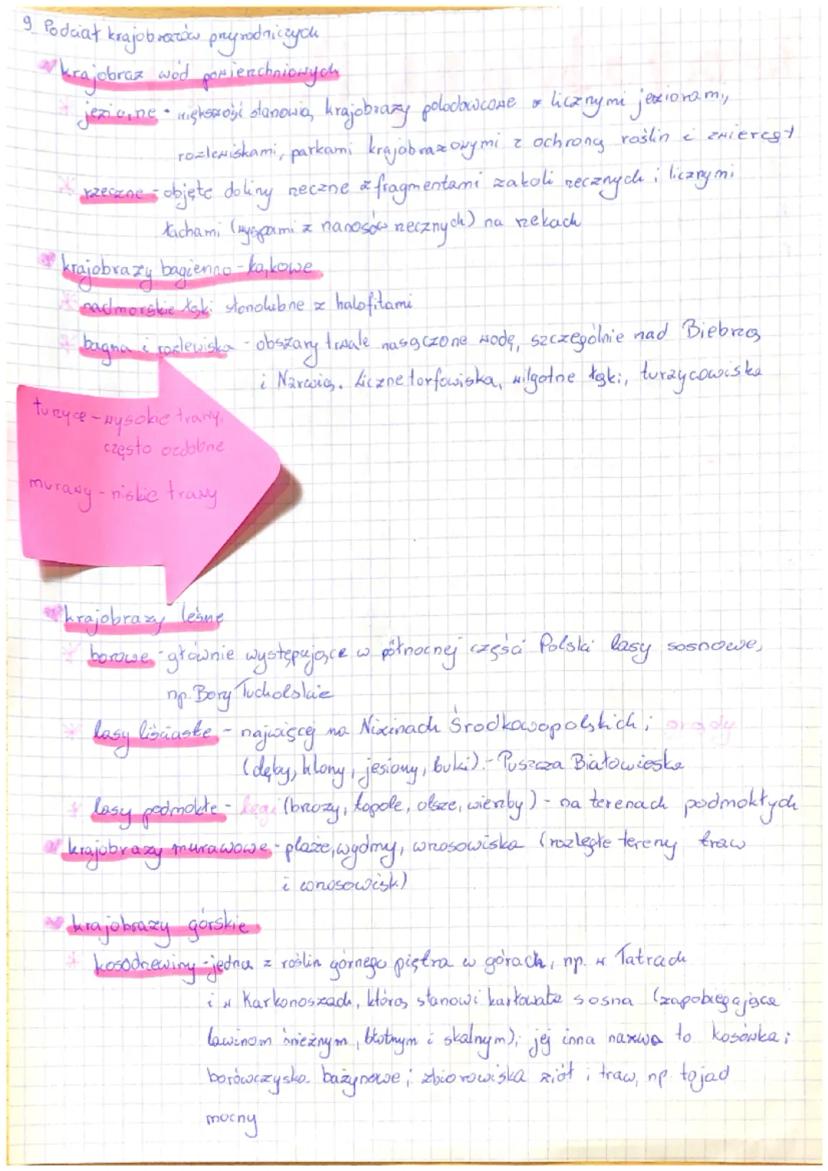 9. Podział krajobrazów przyrodniczych
krajobraz wód powierzchniowych
jeziorne - większość stanowią krajobrazy polodowcowe z licznymi jeziorami,
rozlewiskami, parkami krajobrazowymi z ochroną roślin i zwierząt
rzeczne - objęte doliny rzeczne z fragmentami zakoli rzecznych i licznymi
łachami (wyspami z nanosów rzecznych) na rzekach
krajobrazy bagienno-łąkowe
nadmorskie łąki słonolubne z halofitami
bagna i rozlewiska - obszary trwale nasączone wodą, szczególnie nad Biebrzą
i Narwią. Liczne torfowiska, wilgotne łąki, turzycowiska
turzyce - wysokie trawy,
często ozdobne
murawy - niskie trawy
krajobrazy leśne
borowe - głównie występujące w północnej części Polski lasy sosnowe,
np. Bory Tucholskie
lasy liściaste - najwięcej na Nizinach Środkowopolskich; grądy
(dęby, klony, jesiony, buki) - Puszcza Białowieska
lasy podmokłe - łęgi (brzozy, topole, olsze, wierzby) - na terenach podmokłych
krajobrazy murawowe - plaże, wydmy, wrzosowiska (rozległe tereny traw
i wrzosowisk)
krajobrazy górskie
kosodrzewiny - jedna z roślin górnego piętra w górach, np. w Tatrach
i w Karkonoszach, którą stanowi karłowata sosna (zapobiegająca
lawinom śnieżnym, błotnym i skalnym); jej inna nazwa to kosówka;
borówczysko bażynowe; zbiorowiska ziół i traw, np. tojad
mocny